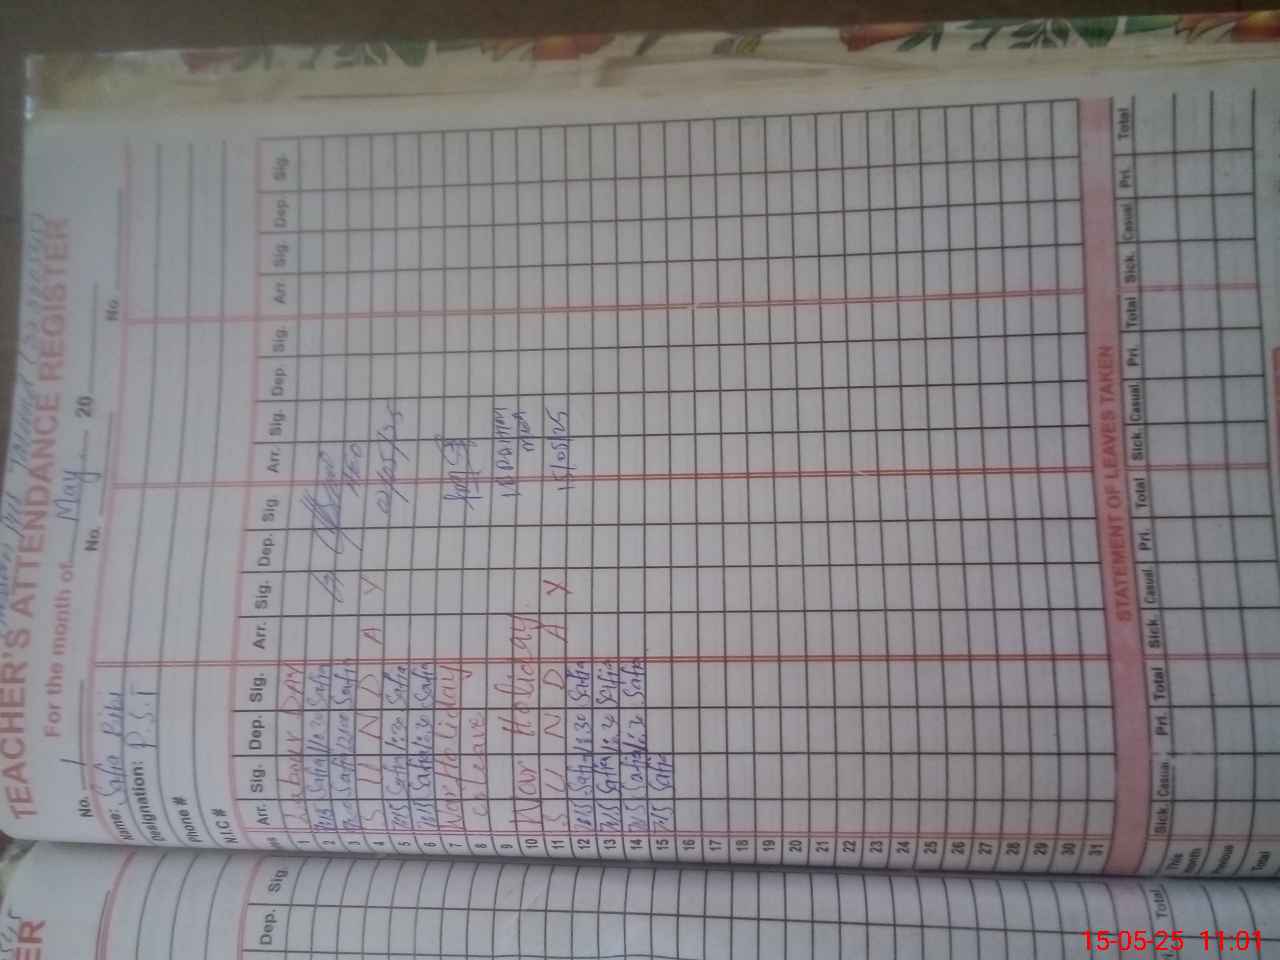 TEACHER'S ATTENDANCE REGISTER
For the month of May 20
No. 1 No. No
Name: Safia Bibi
Designation: P.S.T
Phone #
N.I.C #
Arr. Sig. Dep. Sig. Arr. Sig. Dep. Sig Arr. Sig. Dep Sig. Arr Sig. Dep. Sig.
1 Labour DAY
2 7:45 Safia Safia
3 Safia 12:00 Safia
4 S U N D A Y 01/05/25
5 7:45 Safia 1:30 Safia
6 7:45 Safia 1:30 Safia
7 War Holiday
8 C Leave
9
10 War Holiday
11 S U N D A Y 15/05/25
12 7:45 Safia 1:30 Safia
13 7:45 Safia 1:30 Safia
14 7:45 Safia 1:30 Safia
15 7:45 Safia
16
17
18
19
20
21
22
23
24
25
26
27
28
29
30
31
STATEMENT OF LEAVES TAKEN
Sick. Casual. Pri. Total Sick. Casual. Pri. Total Sick. Casual. Pri. Total Sick. Casual Pri. Total
This month
Previous
Total
ER
Dep. Sig.
Total
15-05-25 11:01